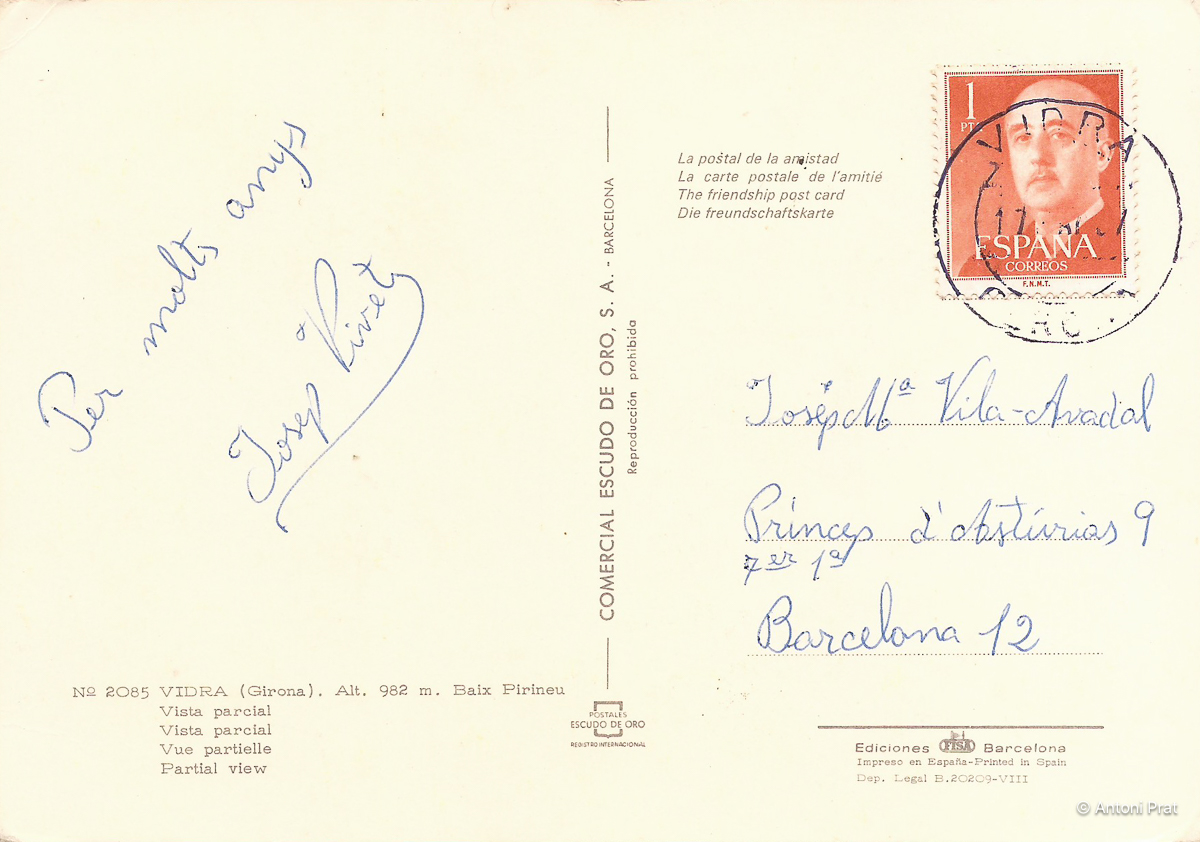 Per molts anys
Josep Vivet
Nº 2085 VIDRA (Girona). Alt. 982 m. Baix Pirineu
Vista parcial
Vista parcial
Vue partielle
Partial view
COMERCIAL ESCUDO DE ORO, S. A. - BARCELONA
Reproducción prohibida
POSTALES
ESCUDO DE ORO
REGISTRO INTERNACIONAL
La postal de la amistad
La carte postale de l'amitié
The friendship post card
Die freundschaftskarte
1
PT
ESPAÑA
CORREOS
F.N.M.T.
VIDRA
Josép Mª Vila-Avadal
Princep d'Astúrias 9
7er 1ª
Barcelona 12
Ediciones FISA Barcelona
Impreso en España-Printed in Spain
Dep. Legal B.20209-VIII
© Antoni Prat